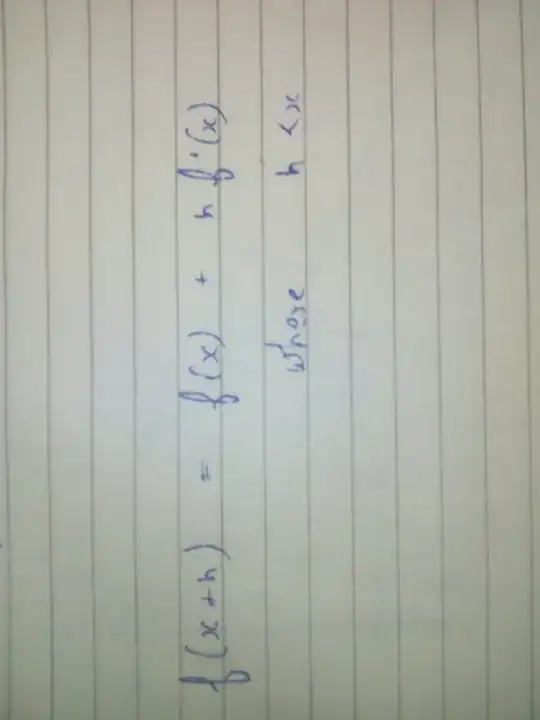 f(x+h) = f(x) + h f'(x)
where h < x